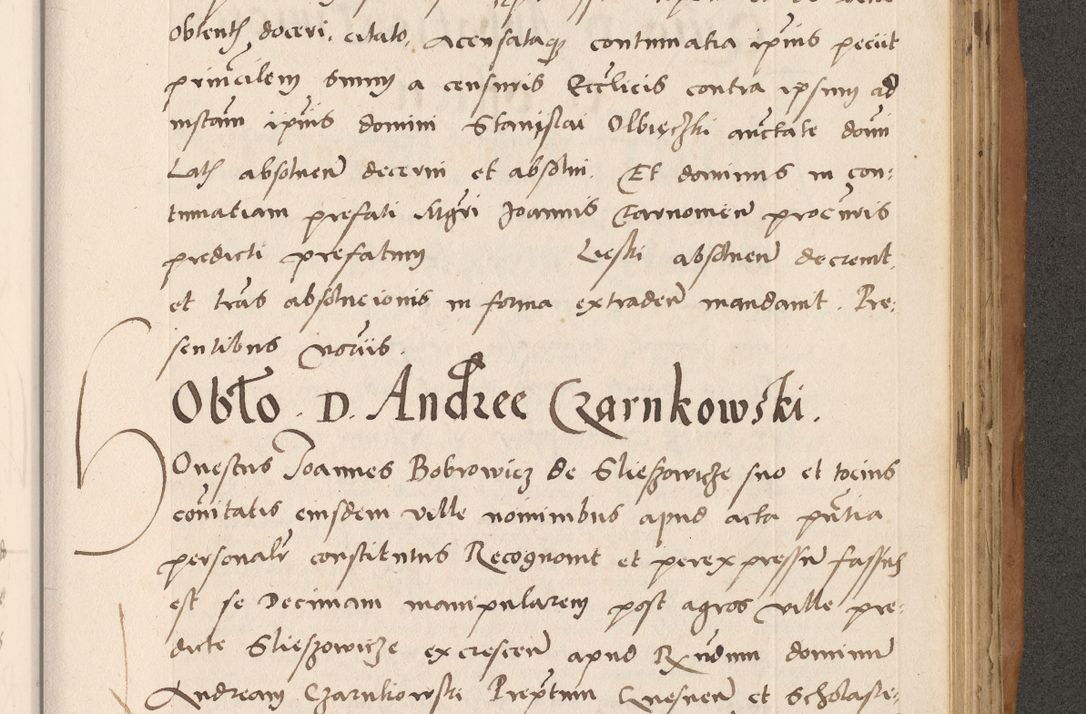 obtenth doceri, citato, acensataque contumatia ipius peciit
principem simm a censuris Ecclicis contra ipsum ad
instam ipius domini Stanislai Olbięczki auctate domi
Lath absoluen decerni et absolui. Et dominus in con:
tumatiam prefati Mgri Joannis Tarnomien procuris
predicti prefatum Lieski absoluen decrevit,
et tras absolucionis in forma extraden mandavit. Pre:
sentibus noruis.
Obło. D. Andree Czarnkowski.
Honestus Joannes Bobrowicz de Slieszowicze suo et tocius
comitatis eiusdem ville nominibus apud acta pntia
personalr constitutus Recognovit et perexpresse fassus
est se Decimam manipularem post agros ville pre:
dicte Slieszowicze excrescen apud Rndum dominum
Andream Czarnkowski Preptum Gnesnen et scholaste: